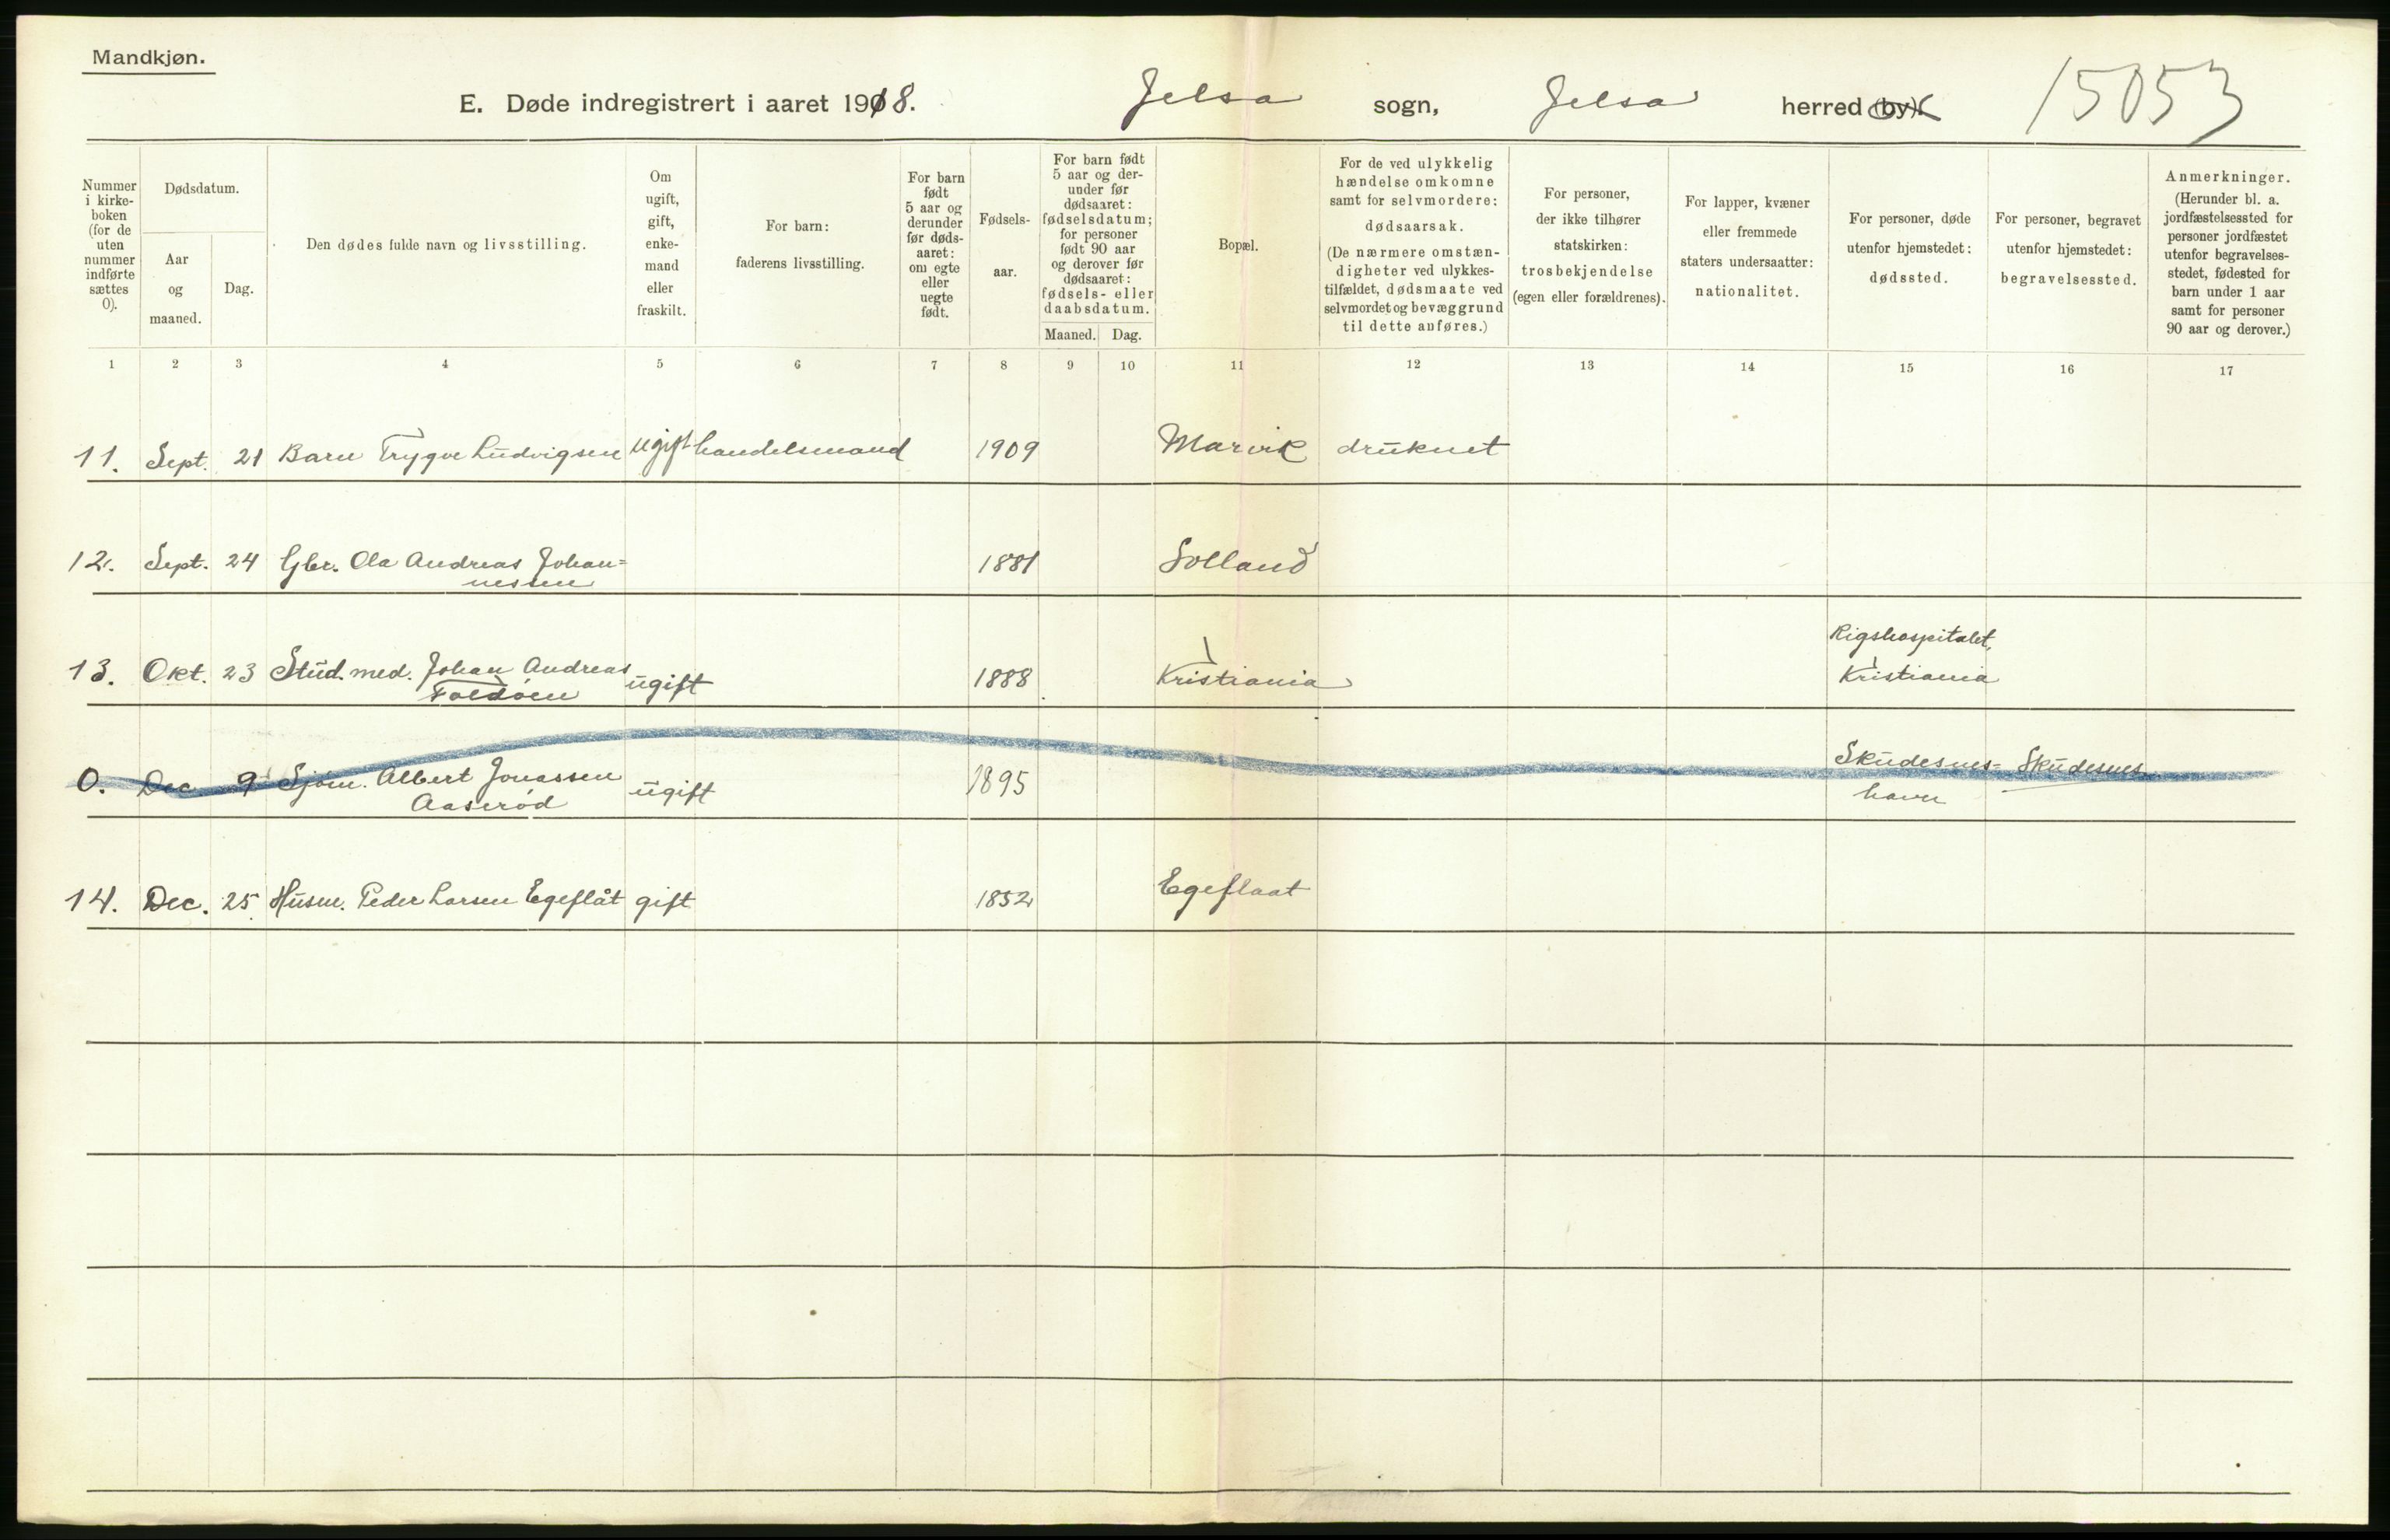 Mandkjøn.
E. Døde indregistrert i aaret 1918. Jelsa sogn, Jelsa herred (by). 15053
Nummer i kirke-boken (for de uten nummer indførte sættes 0).
Dødsdatum.
Aar og maaned.
Dag.
Den dødes fulde navn og livsstilling.
Om ugift, gift, enke-mand eller fraskilt.
For barn: faderens livsstilling.
For barn født 5 aar og derunder før døds-aaret: om egte eller uegte født.
Fødsels-aar.
For barn født 5 aar og der-under før dødsaaret: fødselsdatum; for personer født 90 aar og derover før dødsaaret: fødsels- eller daabsdatum.
Maaned. Dag.
Bopæl.
For de ved ulykkelig hændelse omkomne samt for selvmordere: dødsaarsak. (De nærmere omstæn-digheter ved ulykkes-tilfældet, dødsmaate ved selvmordet og bevæggrund til dette anføres.)
For personer, der ikke tilhører statskirken: trosbekjendelse (egen eller forældrenes).
For lapper, kvæner eller fremmede staters undersaatter: nationalitet.
For personer, døde utenfor hjemstedet: dødssted.
For personer, begravet utenfor hjemstedet: begravelsessted.
Anmerkninger. (Herunder bl. a. jordfæstelsessted for personer jordfæstet utenfor begravelses-stedet, fødested for barn under 1 aar samt for personer 90 aar og derover.)
1 2 3 4 5 6 7 8 9 10 11 12 13 14 15 16 17
11. Sept. 21 Barn Trygve Ludvigsen ugift handelsmand 1909 Marvik druknet
12. Sept. 24 Gbr. Ola Andreas Johan=
nessen 1881 Solland
13. Okt. 23 Stud. med. Johan Andreas
Foldøen ugift 1888 Kristiania Rigshospitalet,
Kristiania
0. Dec 9 Sjøm. Albert Jonassen
Aaserød ugift 1895 Skudesnes=
havn Skudesnes
14. Dec. 25 Husm. Peder Larsen Egeflåt gift 1852 Egeflaat